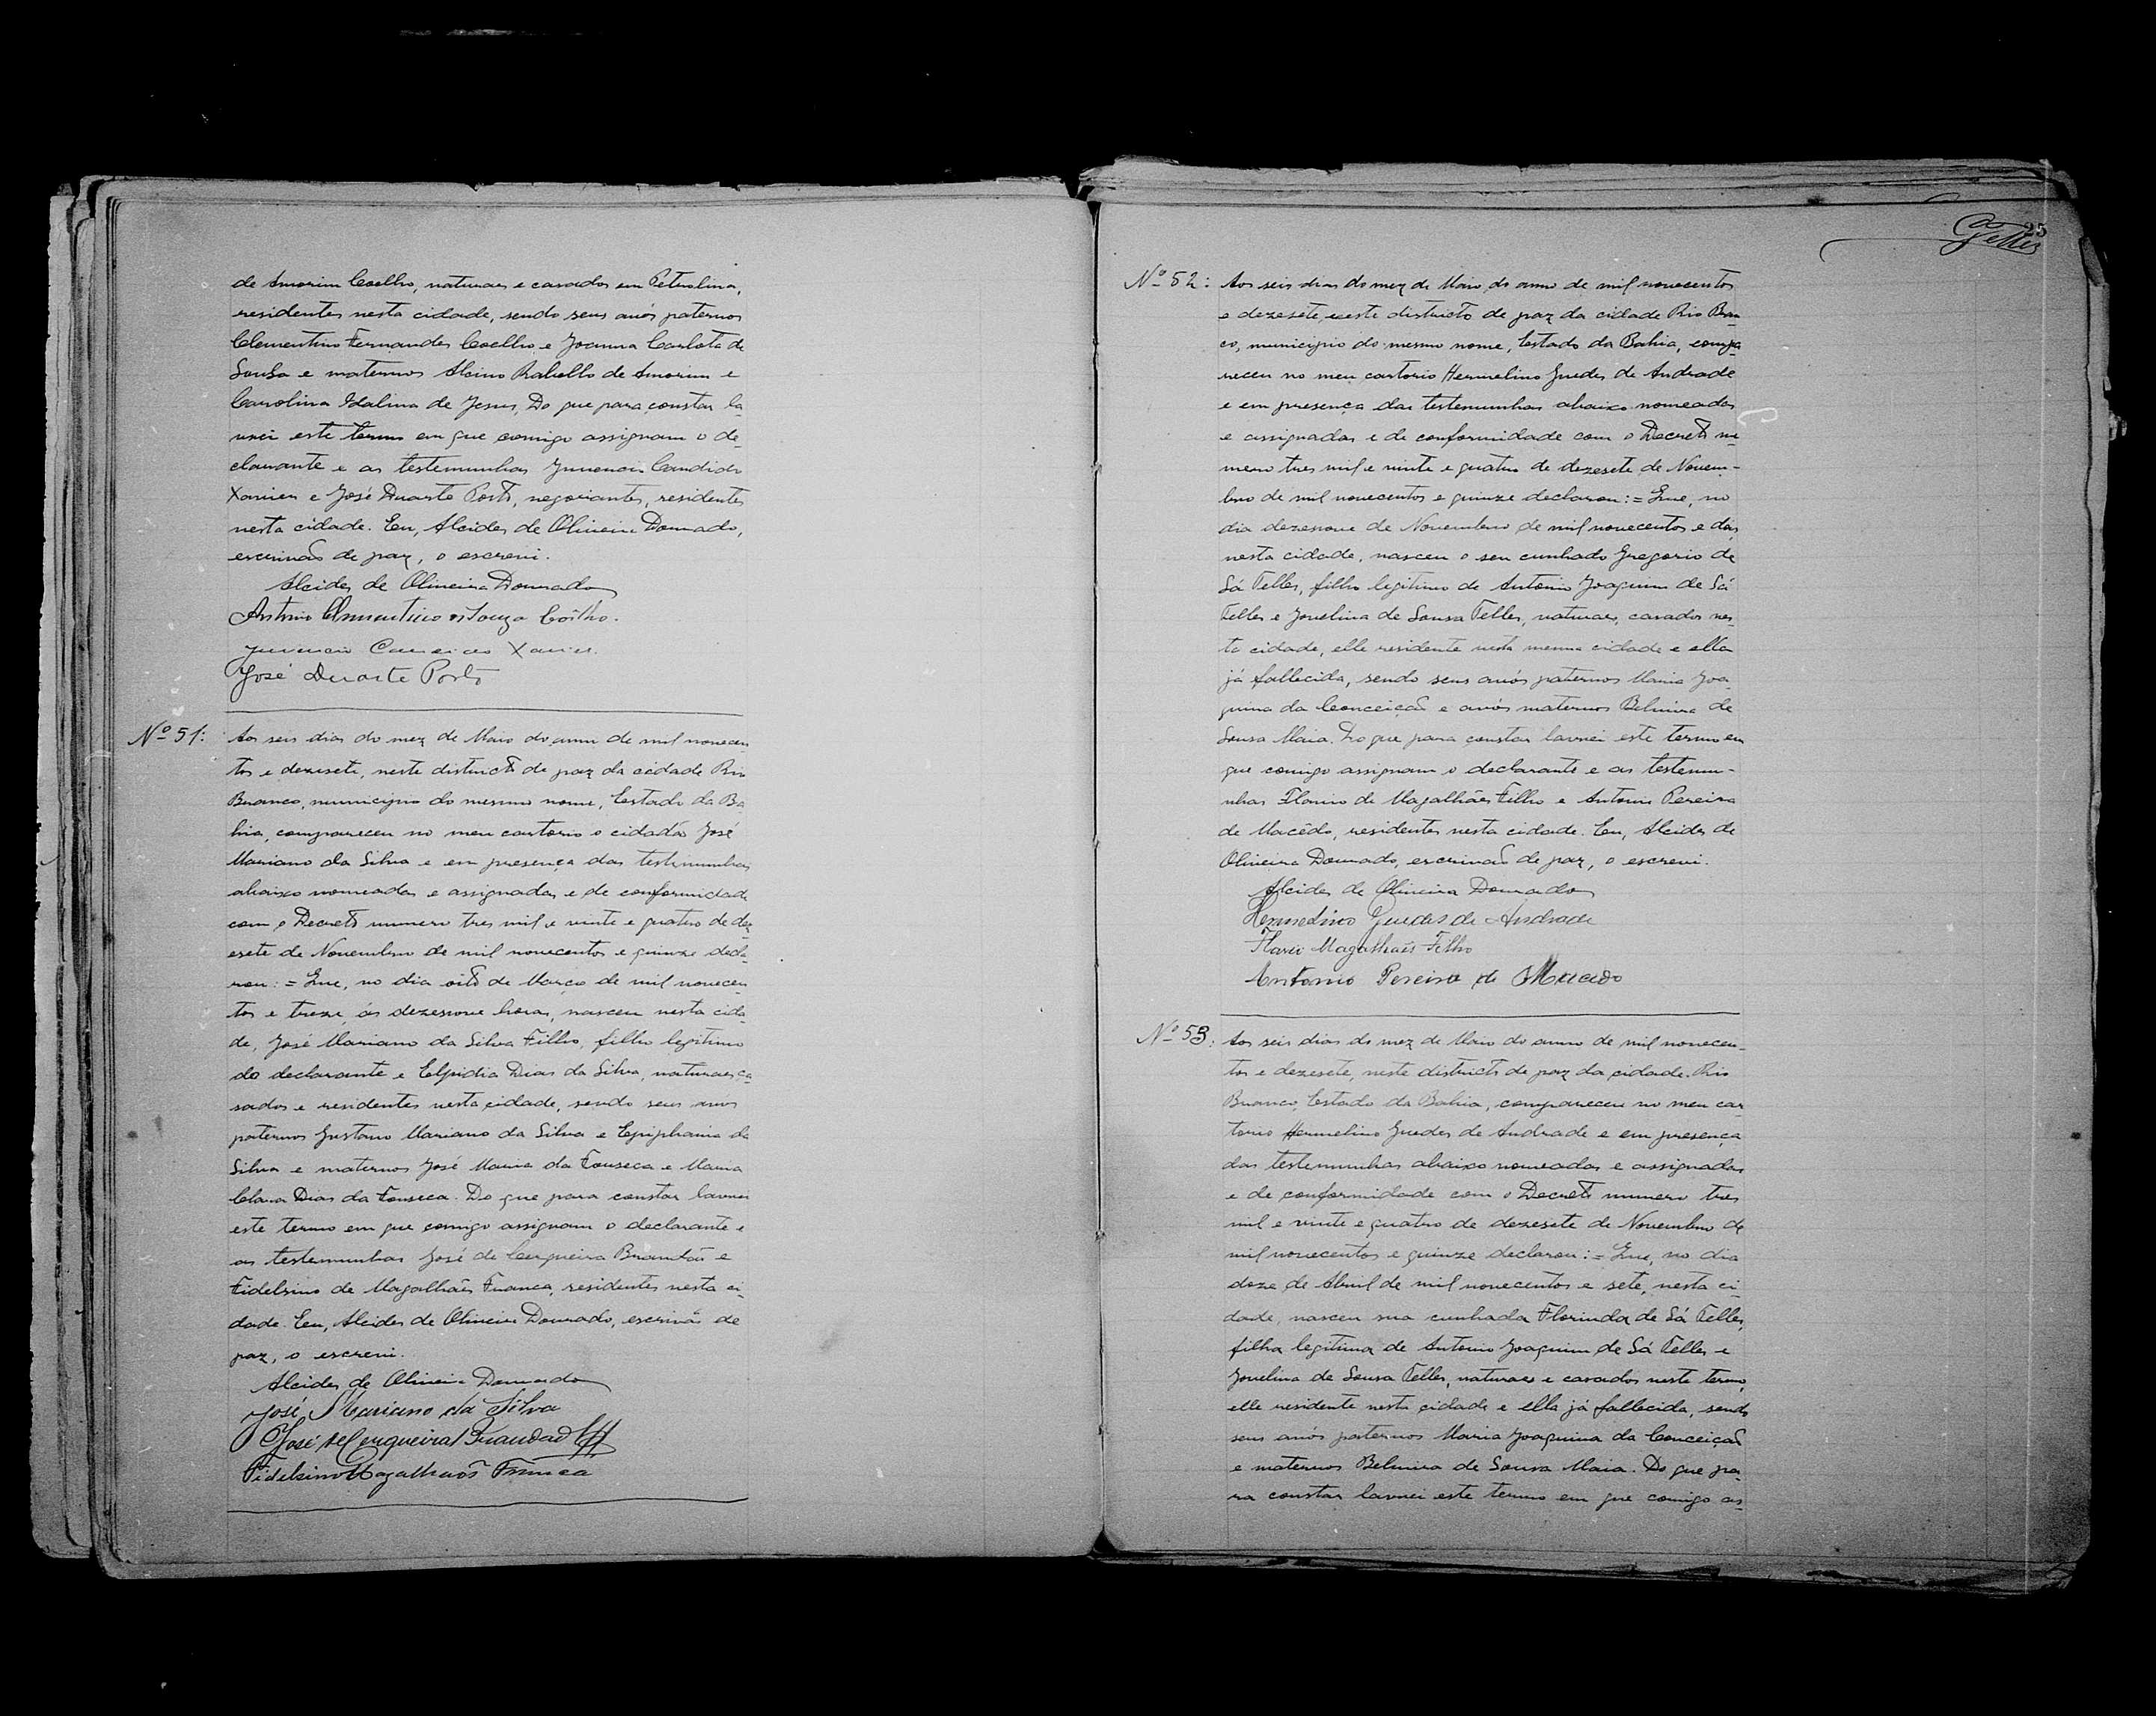 de Amorim Coelho, naturaes e casados em Petrolina,
residentes nesta cidade, sendo seus avós paternos
Clementino Fernandes Coelho e Joanna Carlota de
Sousa e maternos Alcino Rabello de Amorim e
Carolina Idalina de Jesus. Do que para constar la-
vrei este termo em que comigo assignam o de
clarante e as testemunhas Juvencio Candido
Xavier e José Duarte Porto, negociantes, residentes
nesta cidade. Eu, Alcides de Oliveira Dourado,
escrivão de paz, o escrevi.
Alcides de Oliveira Dourado
Antonio Clementino de Souza Coêlho.
Juvencio Xavier.
José Duarte Porto
Nº 51: Aos seis dias do mez de Maio do anno de mil novecen
tos e dezesete, neste districto de paz da cidade Rio
Branco, municipio do mesmo nome, Estado da Ba
hia, compareceu no meu cartorio o cidadão José
Mariano da Silva e em presença das testemunhas
abaixo nomeadas e assignadas e de conformidade
com o Decreto numero tres mil e vinte e quatro de dez
esete de Novembro de mil novecentos e quinze decla-
rou: = Que, no dia oito de Março de mil novecen
tos e treze, ás dezenove horas, nasceu nesta cida-
de, José Mariano da Silva Filho, filho legitimo
do declarante e Elpidia Dias da Silva, naturaes, ca-
sados e residentes nesta cidade, sendo seus avos
paternos Gustavo Mariano da Silva e Epiphania da
Silva e maternos José Maria da Fonseca e Maria
Clara Dias da Fonseca. Do que para constar lavrei
este termo em que comigo assignam o declarante e
as testemunhas José de Cerqueira Brandão e
Fidelsino de Magalhães França, residentes nesta ci-
dade. Eu, Alcides de Oliveira Dourado, escrivão de
paz, o escrevi.
Alcides de Oliveira Dourado
José Mariano da Silva
José de Cerqueira Brandão
Fidelsino Magalhães França
25
Telles
Nº 52: Aos seis dias do mez de Maio do anno de mil novecentos
e dezesete, neste districto de paz da cidade Rio Bran
co, municipio do mesmo nome, Estado da Bahia, compa
receu no meu cartorio Hermelino Guedes de Andrade
e em presença das testemunhas abaixo nomeadas
e assignadas e de conformidade com o Decreto nu
mero tres mil e vinte e quatro de dezesete de Novem-
bro de mil novecentos e quinze declarou: = Que, no
dia dezenove de Novembro de mil novecentos e dois,
nesta cidade, nasceu o seu cunhado Gregorio de
Sá Telles, filho legitimo de Antonio Joaquim de Sá
Telles e Jovelina de Sousa Telles, naturaes, casados nes-
ta cidade, elle residente nesta mesma cidade e ella
já fallecida, sendo seus avós paternos Maria Joa-
quina da Conceição e avós maternos Belmira de
Sousa Maia. Do que para constar lavrei este termo em
que comigo assignam o declarante e as testemu-
nhas Flavio de Magalhães Filho e Antonio Pereira
de Macêdo, residentes nesta cidade. Eu, Alcides de
Oliveira Dourado, escrivão de paz, o escrevi.
Alcides de Oliveira Dourado
Hermelino Guedes de Andrade
Flavio Magalhães Filho
Antonio Pereira de Macedo
Nº 53: Aos seis dias do mez de Maio do anno de mil novecen-
tos e dezesete, neste districto de paz da cidade Rio
Branco, Estado da Bahia, compareceu no meu car
torio Hermelino Guedes de Andrade e em presença
das testemunhas abaixo nomeadas e assignadas
e de conformidade com o Decreto numero tres
mil e vinte e quatro de dezesete de Novembro de
mil novecentos e quinze declarou: = Que, no dia
doze de Abril de mil novecentos e sete, nesta ci-
dade, nasceu sua cunhada Florinda de Sá Telles,
filha legitima de Antonio Joaquim de Sá Telles e
Jovelina de Sousa Telles, naturaes e casados neste termo,
elle residente nesta cidade e ella já fallecida, sendo
seus avós paternos Maria Joaquina da Conceição
e maternos Belmira de Sousa Maia. Do que pa-
ra constar lavrei este termo em que comigo as-